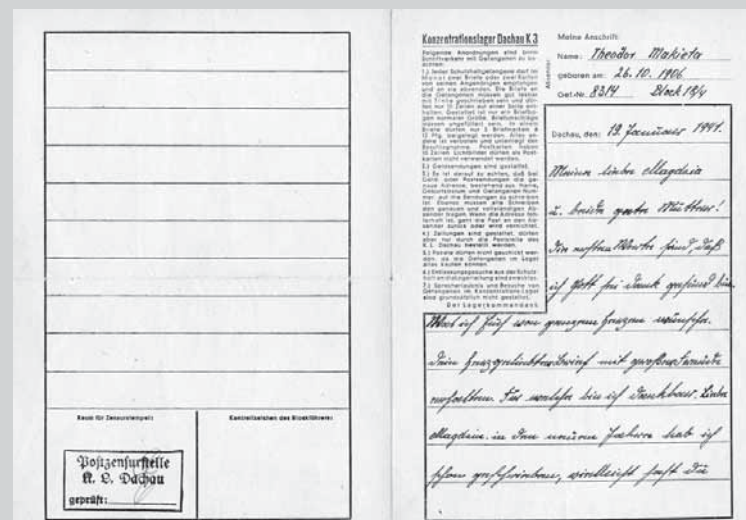 Raum für Zensurstempel:
Kontrollzeichen des Blockführers:
Postzensurstelle
K. L. Dachau
geprüft:
Konzentrationslager Dachau K 3
Folgende Anordnungen sind beim
Schriftverkehr mit Gefangenen zu be-
achten:
1.) Jeder Schutzhaftgefangene darf im
Monat zwei Briefe oder zwei Karten
von seinen Angehörigen empfangen
und an sie absenden. Die Briefe an
die Gefangenen müssen gut lesbar
mit Tinte geschrieben sein und dür-
fen nur 15 Zeilen auf einer Seite ent-
halten. Gestattet ist nur ein Briefbo-
gen normaler Größe. Briefumschläge
müssen ungefüttert sein. In einem
Briefe dürfen nur 5 Briefmarken à
12 Pfg. beigelegt werden. Alles an-
dere ist verboten und unterliegt der
Beschlagnahme. Postkarten haben
10 Zeilen. Lichtbilder dürfen als Post-
karten nicht verwendet werden.
2.) Geldsendungen sind gestattet.
3.) Es ist darauf zu achten, daß bei
Geld- oder Postsendungen die ge-
naue Adresse, bestehend aus: Name,
Geburtsdatum und Gefangenen-Num-
mer, auf die Sendungen zu schreiben
ist. Ebenso müssen alle Schreiben
den genauen und vollständigen Ab-
sender tragen. Wenn die Adresse feh-
lerhaft ist, geht die Post an den Ab-
sender zurück oder wird vernichtet.
4.) Zeitungen sind gestattet, dürfen
aber nur durch die Poststelle des
K. L. Dachau bestellt werden.
5.) Pakete dürfen nicht geschickt wer-
den, da die Gefangenen im Lager
alles kaufen können.
6.) Entlassungsgesuche aus der Schutz-
haft an die Lagerleitung sind zwecklos.
7.) Sprecherlaubnis und Besuche von
Gefangenen im Konzentrations-Lager
sind grundsätzlich nicht gestattet.
Der Lagerkommandant
Absender:
Meine Anschrift:
Name: Theodor Makieta
geboren am: 26.10.1906
Gef.-Nr. 8314 Block 18/4
Dachau, den: 19. Januar 1941.
Meine liebe Magdzia
u. beide gute Mütter!
Die ersten Worte sind, daß
ich Gott sei Dank gesund bin.
Was ich Euch von ganzem Herzen wünsche.
Dein herzgeliebter Brief mit großer Freude
erhalten. Für welche bin ich dankbar. Liebe
Magdzia in dem neuen Jahre hab ich
schon geschrieben, vielleicht hast Du